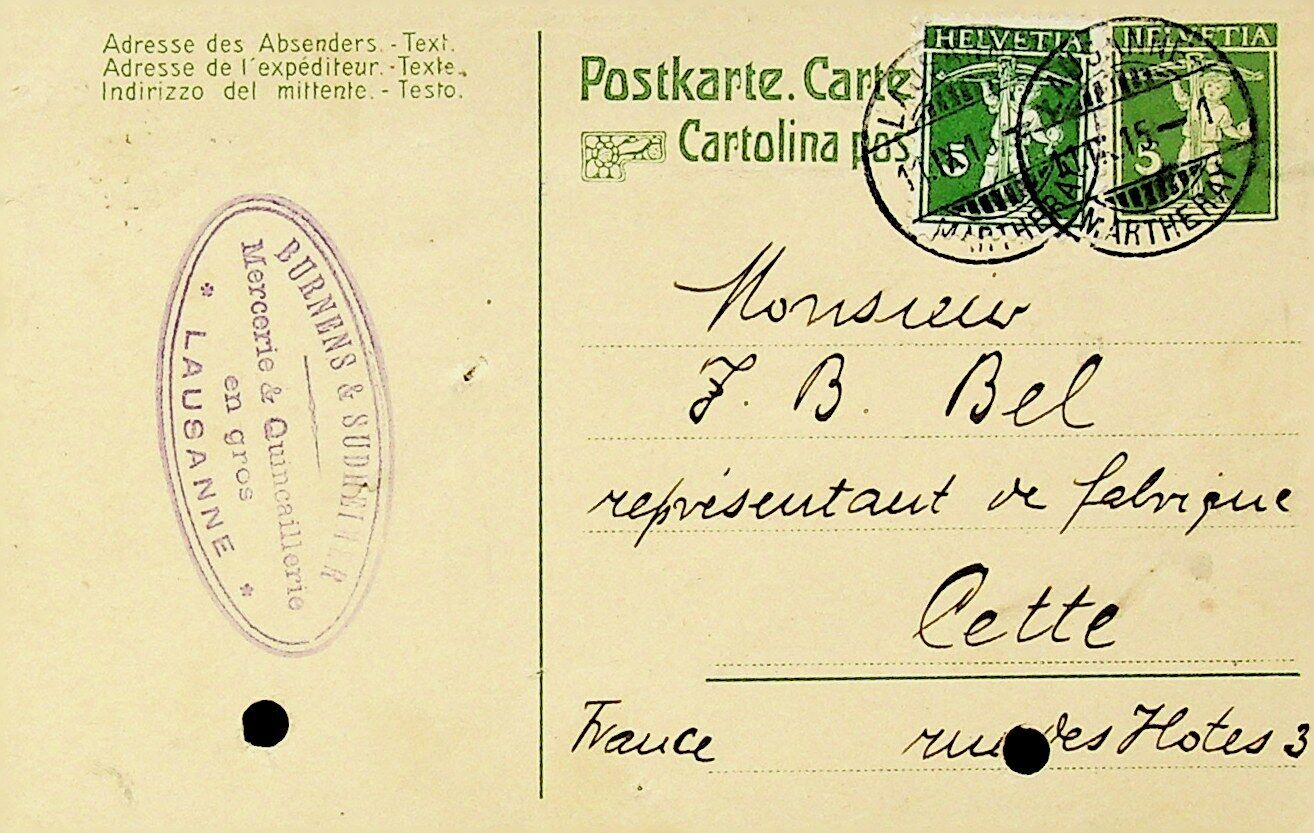 Adresse des Absenders. - Text.
Adresse de l'expéditeur. - Texte.
Indirizzo del mittente. - Testo.
Postkarte. Carte
Cartolina pos
HELVETIA
5
HELVETIA
5
LAUSANNE
MARTHERAY
LAUSANNE
15 - 1
MARTHERAY
BURNENS &
Mercerie & Quincaillerie
en gros
* LAUSANNE *
Monsieur
J. B. Bel
représentant de fabrique
Cette
France
rue des Hotes 3